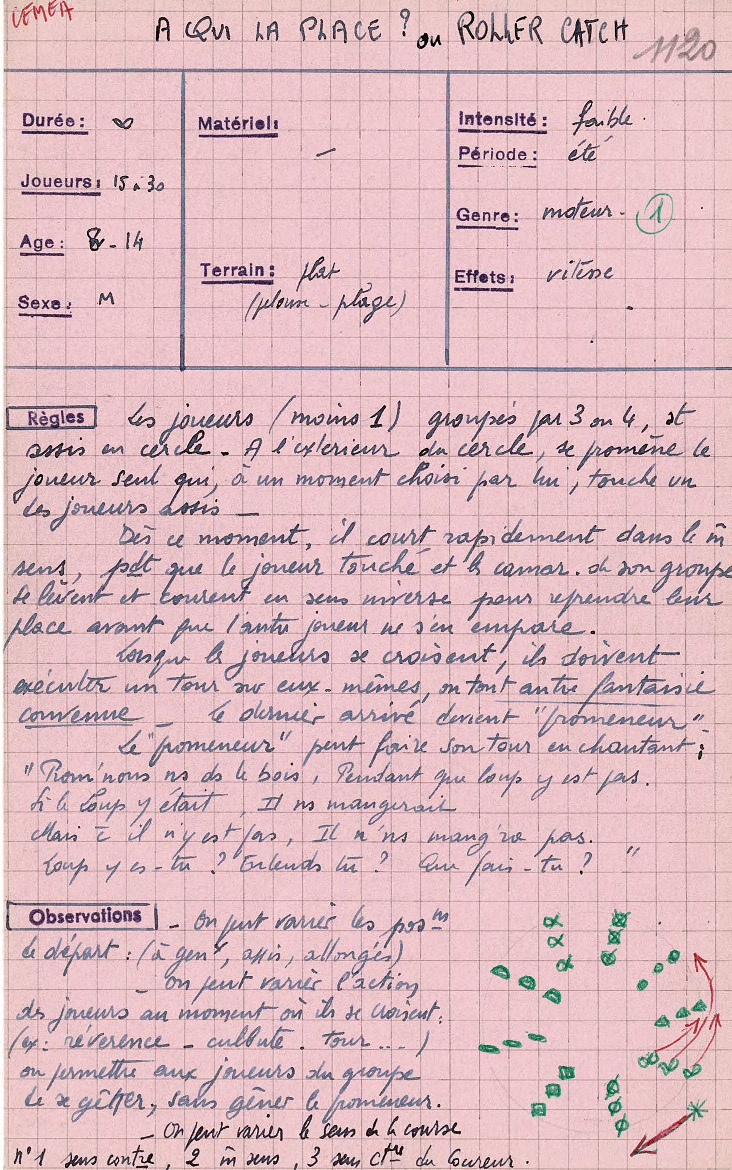 CEMEA
A QUI LA PLACE ? ou ROLLER CATCH
1120
Durée : ∞
Joueurs : 15 à 30
Age : 8 - 14
Sexe : M
Matériel : —
Terrain : plat
(pelouse - plage)
Intensité : faible.
Période : été
Genre : moteur - 1
Effets : vitesse
Règles Les joueurs (moins 1) groupés par 3 ou 4, st
assis en cercle - A l'extérieur du cercle, se promène le
joueur seul qui, à un moment choisi par lui, touche un
des joueurs assis -
Dès ce moment, il court rapidement dans le m̄
sens, pdt que le joueur touché et les camar. de son groupe
se lèvent et courent en sens inverse pour reprendre leur
place avant que l'autre joueur ne s'en empare.
Lorsque les joueurs se croisent, ils doivent
exécuter un tour sur eux-mêmes, ou tout autre fantaisie
convenue - le dernier arrivé devient "promeneur"
Le "promeneur" peut faire son tour en chantant :
"Prom'nous ns ds le bois, Pendant que loup y est pas.
Si le Loup y était, Il ns mangerait
Mais c̄ il n'y est pas, Il n'ns mang'ra pas.
Loup y es-tu ? Entends tu ? Que fais-tu ? "
Observations - On peut varier les posns
de départ : (à genx, assis, allongés)
- On peut varier l'action
des joueurs au moment où ils se croisent :
(ex : révérence - culbute . tour ....)
ou permettre aux joueurs du groupe
de se gêner, sans gêner le promeneur.
- On peut varier le sens de la course
n° 1 sens contre, 2 m̄ sens, 3 sens ctre du Coureur.